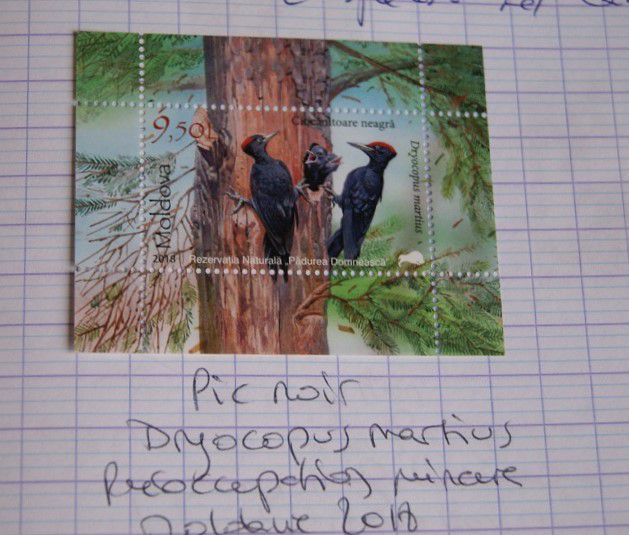 9,50 L
Ciocănitoare neagră
Dryocopus martius
Moldova
2018 Rezervația Naturală „Pădurea Domnească”
Pic noir
Dryocopus martius
Préoccupation mineure
Moldavie 2018